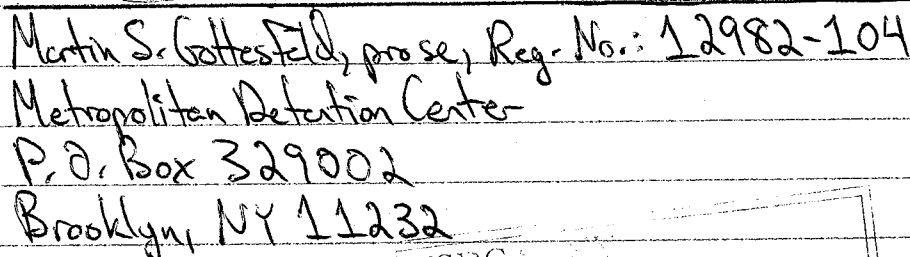 Martin S. Gottesfeld, pro se, Reg. No.: 12982-104
Metropolitan Detention Center
P.O. Box 329002
Brooklyn, NY 11232